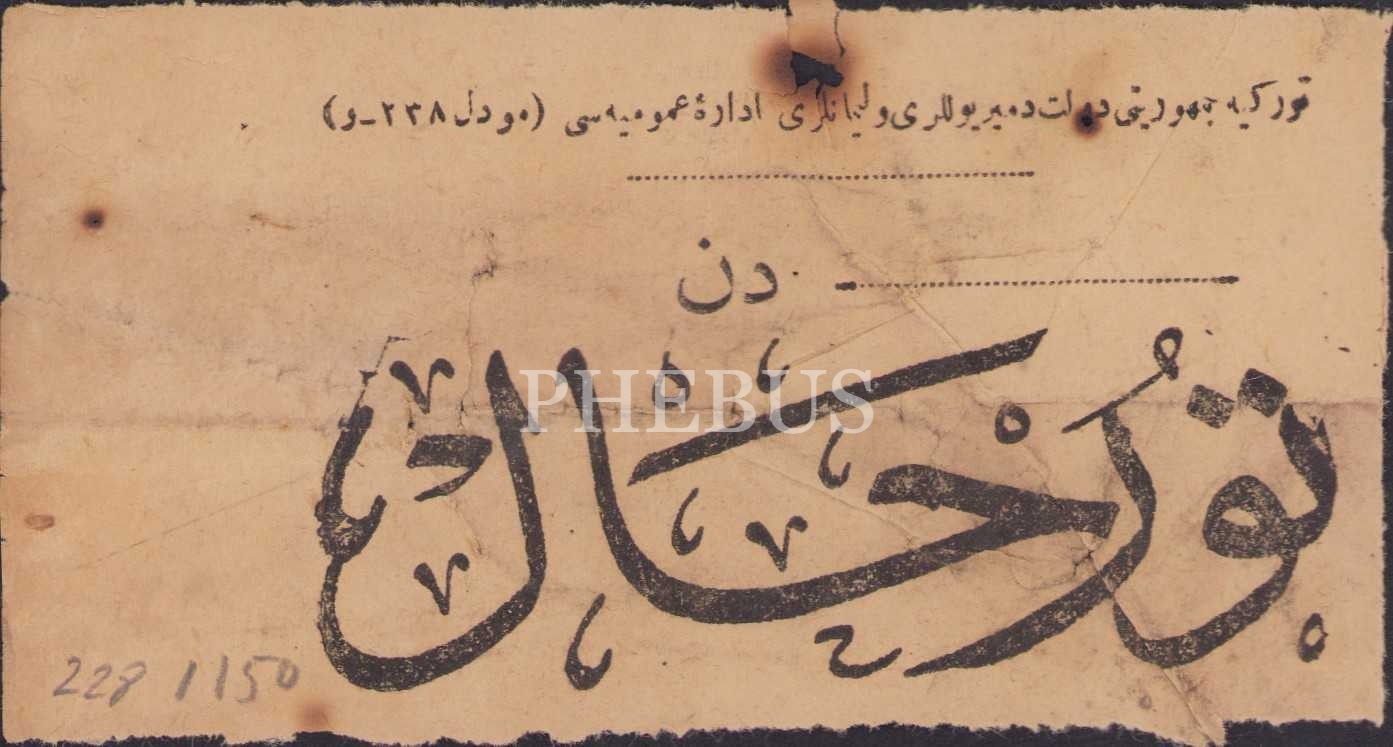 توركیه جمهوریتی دولت دمیریوللری ولیمانلری ادارۀ عمومیه‌سی (مودل ٢٣٨ـو)
دن
تورخال
PHEBUS
228 / 150